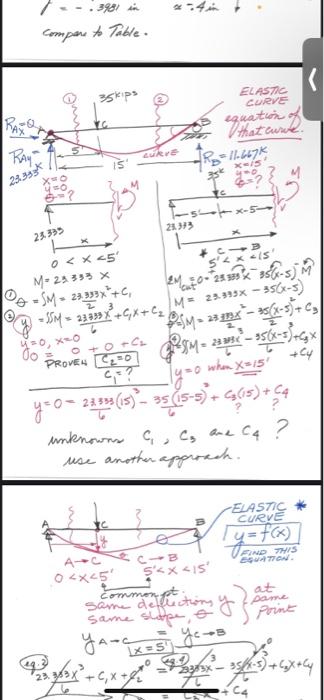 = - .3981 in ≈ .4 in ↓
Compare to Table.
① 35 kips ②
ELASTIC
CURVE
equation of
that curve.
RAx=0 A C B
RAy= 5' CURVE RB=11.667K
15'
23.333K
x=0
y=0
θ=?
x=15'
y=0
θ=?
M 35K M
23.333 5' x-5
x 23.333
x
0 < x < 5'
* C → B
5' < x < 15'
M = 23.333 X
ΣMcut = 0 = 23.333X - 35(x-5) M
① θ = ∫M = 23.333X²/2 + C₁
M = 23.333X - 35(x-5)
② y = ∫∫M = 23.333X³/6 + C₁X + C₂
③ ∫M = 23.333X²/2 - 35(x-5)²/2 + C₃
y=0, x=0
④ ∫∫M = 23.333X³/6 - 35(x-5)³/6 + C₃X + C₄
0 = 0 + 0 + C₂
PROVEN C₂=0
C₁=?
y=0 when X=15'
y=0= 23.333(15)³/6 - 35(15-5)³/6 + C₃(15) + C₄
? ?
unknowns C₁, C₃ and C₄ ?
use another approach.
ELASTIC *
CURVE
A C B
y
y=f(x)
FIND THIS
EQUATION.
A→C C→B
0<x<5' 5'<x<15'
common pt
same deflections y at
same slope, θ same
point
yA→C = yC→B
x=5'
eq.2 eq.4
23.333X³/6 + C₁X + C₂ = 23.333X³/6 - 35(x-5)³/6 + C₃X + C₄